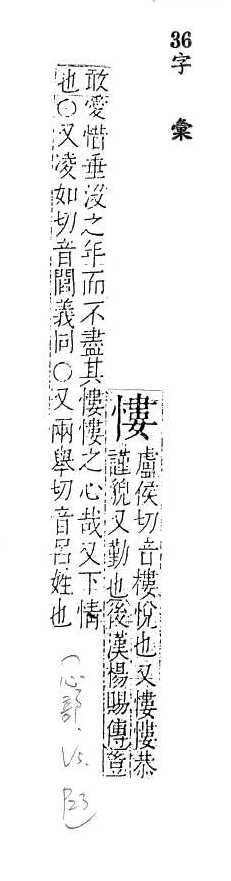 36字彙
慺
盧侯切音樓悅也又慺慺恭
謹貌又勤也後漢楊賜傳豈
敢愛惜垂沒之年而不盡其慺慺之心哉又下情
也○又凌如切音閭義同○又兩舉切音呂姓也
(心部.V5.
P.23